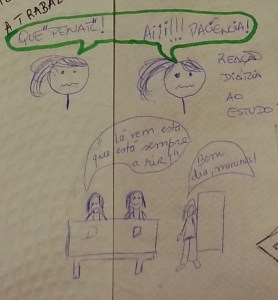 A TRABAL
QUE "PENATE"!
AIII!!! PACIÊNCIA!
REAÇÃO
DIÁRIA
AO
ESTUDO
Lá vem esta
que está sempre
a rir!!!
Bom
dia, meninas!